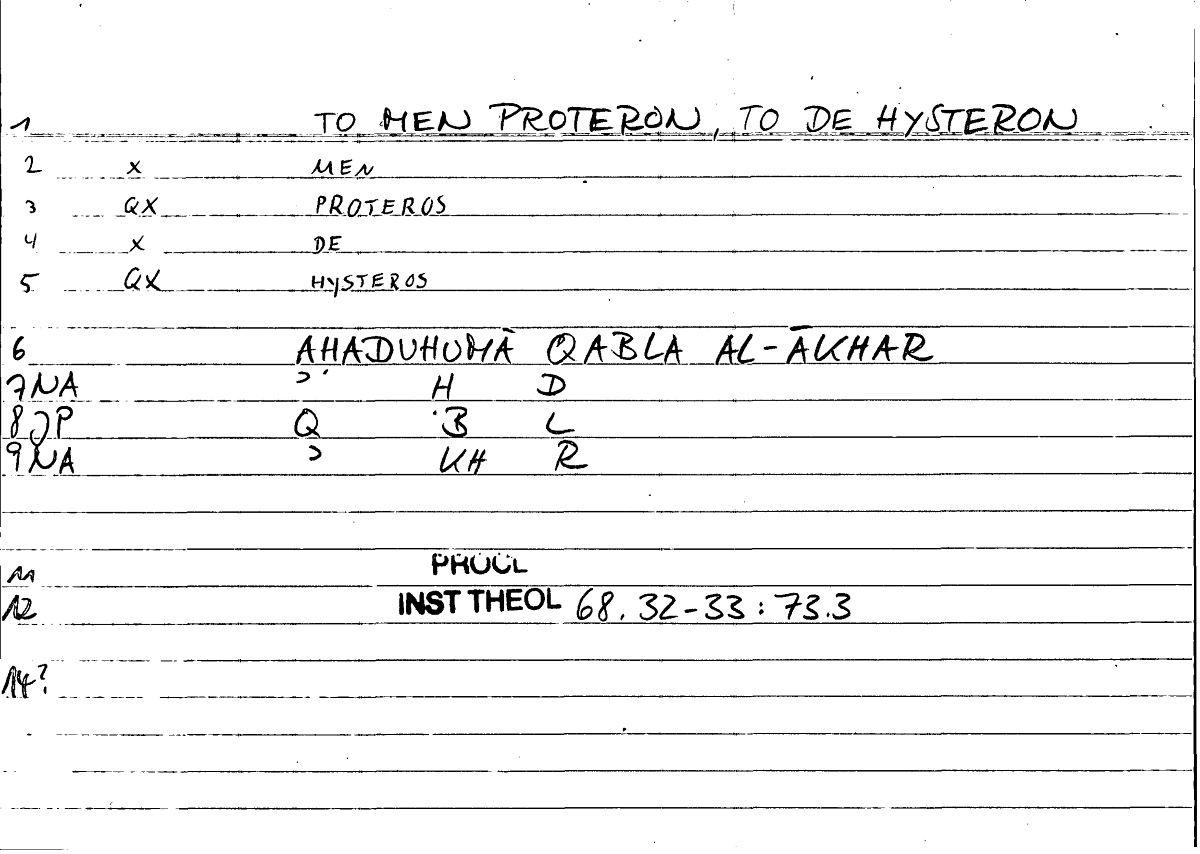 1 TO MEN PROTERON, TO DE HYSTERON
2 X MEN
3 QX PROTEROS
4 X DE
5 QX HYSTEROS
6 AHADUHUMĀ QABLA AL-ĀKHAR
7NA ʾ H D
8JP Q B L
9NA ʾ KH R
11 PROCL
12 INST THEOL 68.32-33:73.3
14?